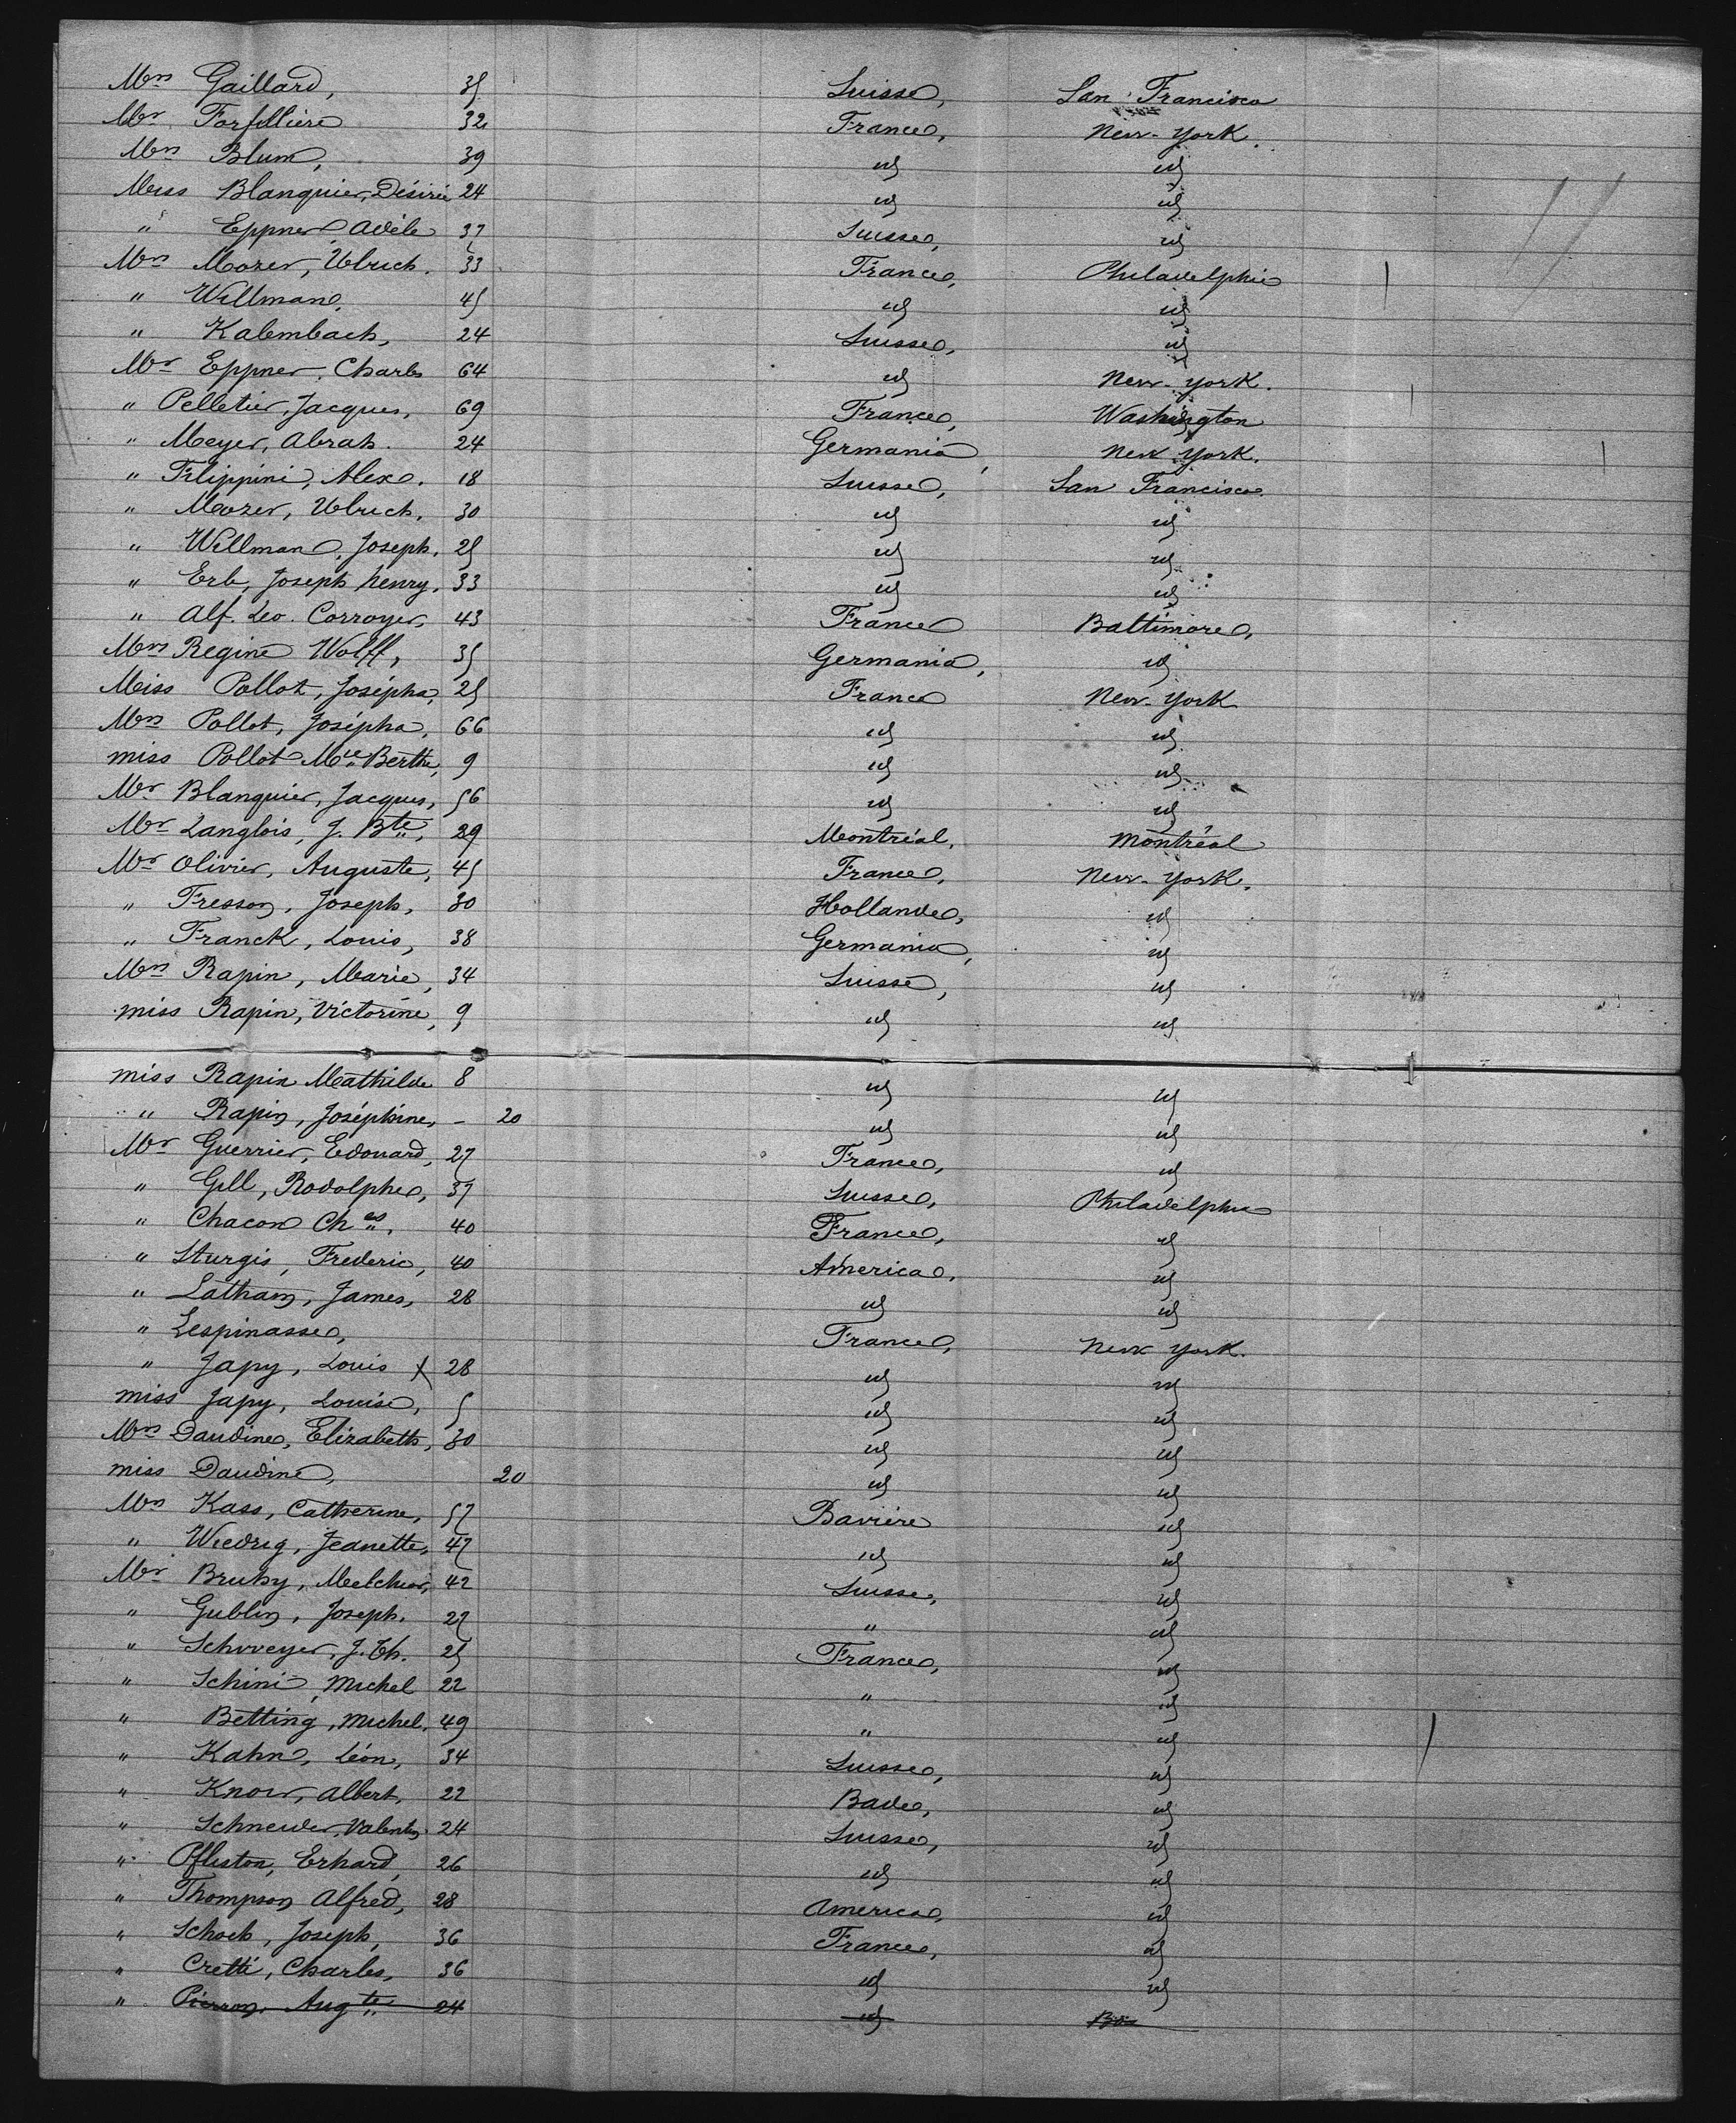 Mrs Gaillard, 35 Suisse, San Francisco
Mr Forfillière 32 France, New-York.
Mrs Blum, 39 id id
Miss Blanquier, Désirée 24 id id
" Eppner, Adèle 37 Suisse, id
Mrs Mozer, Ulrich. 33 France, Philadelphie
" Willman, 45 id id
" Kalembach, 24 Suisse, id
Mr Eppner, Charles 64 id New-York.
" Pelletier, Jacques, 69 France, Washington
" Meyer, Abrah. 24 Germania, New York.
" Filippini, Alex. 18 Suisse, San Francisco.
" Mozer, Ulrich, 30 id id
" Willman, Joseph. 25 id id
" Erb, Joseph henry. 33 id id
" Alf. Leo. Corroyer 43 France Baltimore,
Mrs Regine Wolff, 35 Germania, id
Miss Pollot, Josépha, 25 France New-York
Mrs Pollot, Josépha, 66 id id
miss Pollot Mie Berthe, 9 id id
Mr Blanquier, Jacques, 56 id id
Mr Langlois, J. Bte, 29 Montréal, Montréal
Mr Olivier, Auguste, 45 France, New-York.
" Fresson, Joseph, 30 Hollande, id
" Franck, Louis, 38 Germania, id
Mrs Rapin, Marie, 34 Suisse, id
miss Rapin, Victorine, 9 id id
miss Rapin Mathilde 8 id id
" Rapin, Joséphine, - 20 id id
Mr Guerrier, Edouard, 27 France, id
" Gell, Rodolphe, 37 Suisse, Philadelphie
" Chacon Ches, 40 France, id
" Sturgis, Frederic, 40 America, id
" Latham, James, 28 id id
" Lespinasse, France, New York.
" Japy, Louis X 28 id id
miss Japy, Louise, 5 id id
Mrs Daudine, Elizabeth, 30 id id
miss Daudine, 20 id id
Mrs Kass, Catherine, 57 Bavière id
" Wiedrig, Jeanette, 47 id id
Mr Bruhy, Melchior, 42 Suisse, id
" Gublin, Joseph. 27 " id
" Schweyer, J. Th. 25 France, id
" Schini, Michel 22 " id
" Betting, Michel. 49 " id
" Kahn, Léon, 34 Suisse, id
" Know, Albert, 22 Bade, id
" Schneider, Valentin 24 Suisse, id
" Pfliston, Erhard, 26 id id
" Thompson Alfred, 28 America, id
" Schoch, Joseph, 36 France, id
" Cretti, Charles, 36 id id
" Pierron, Augte 24 id